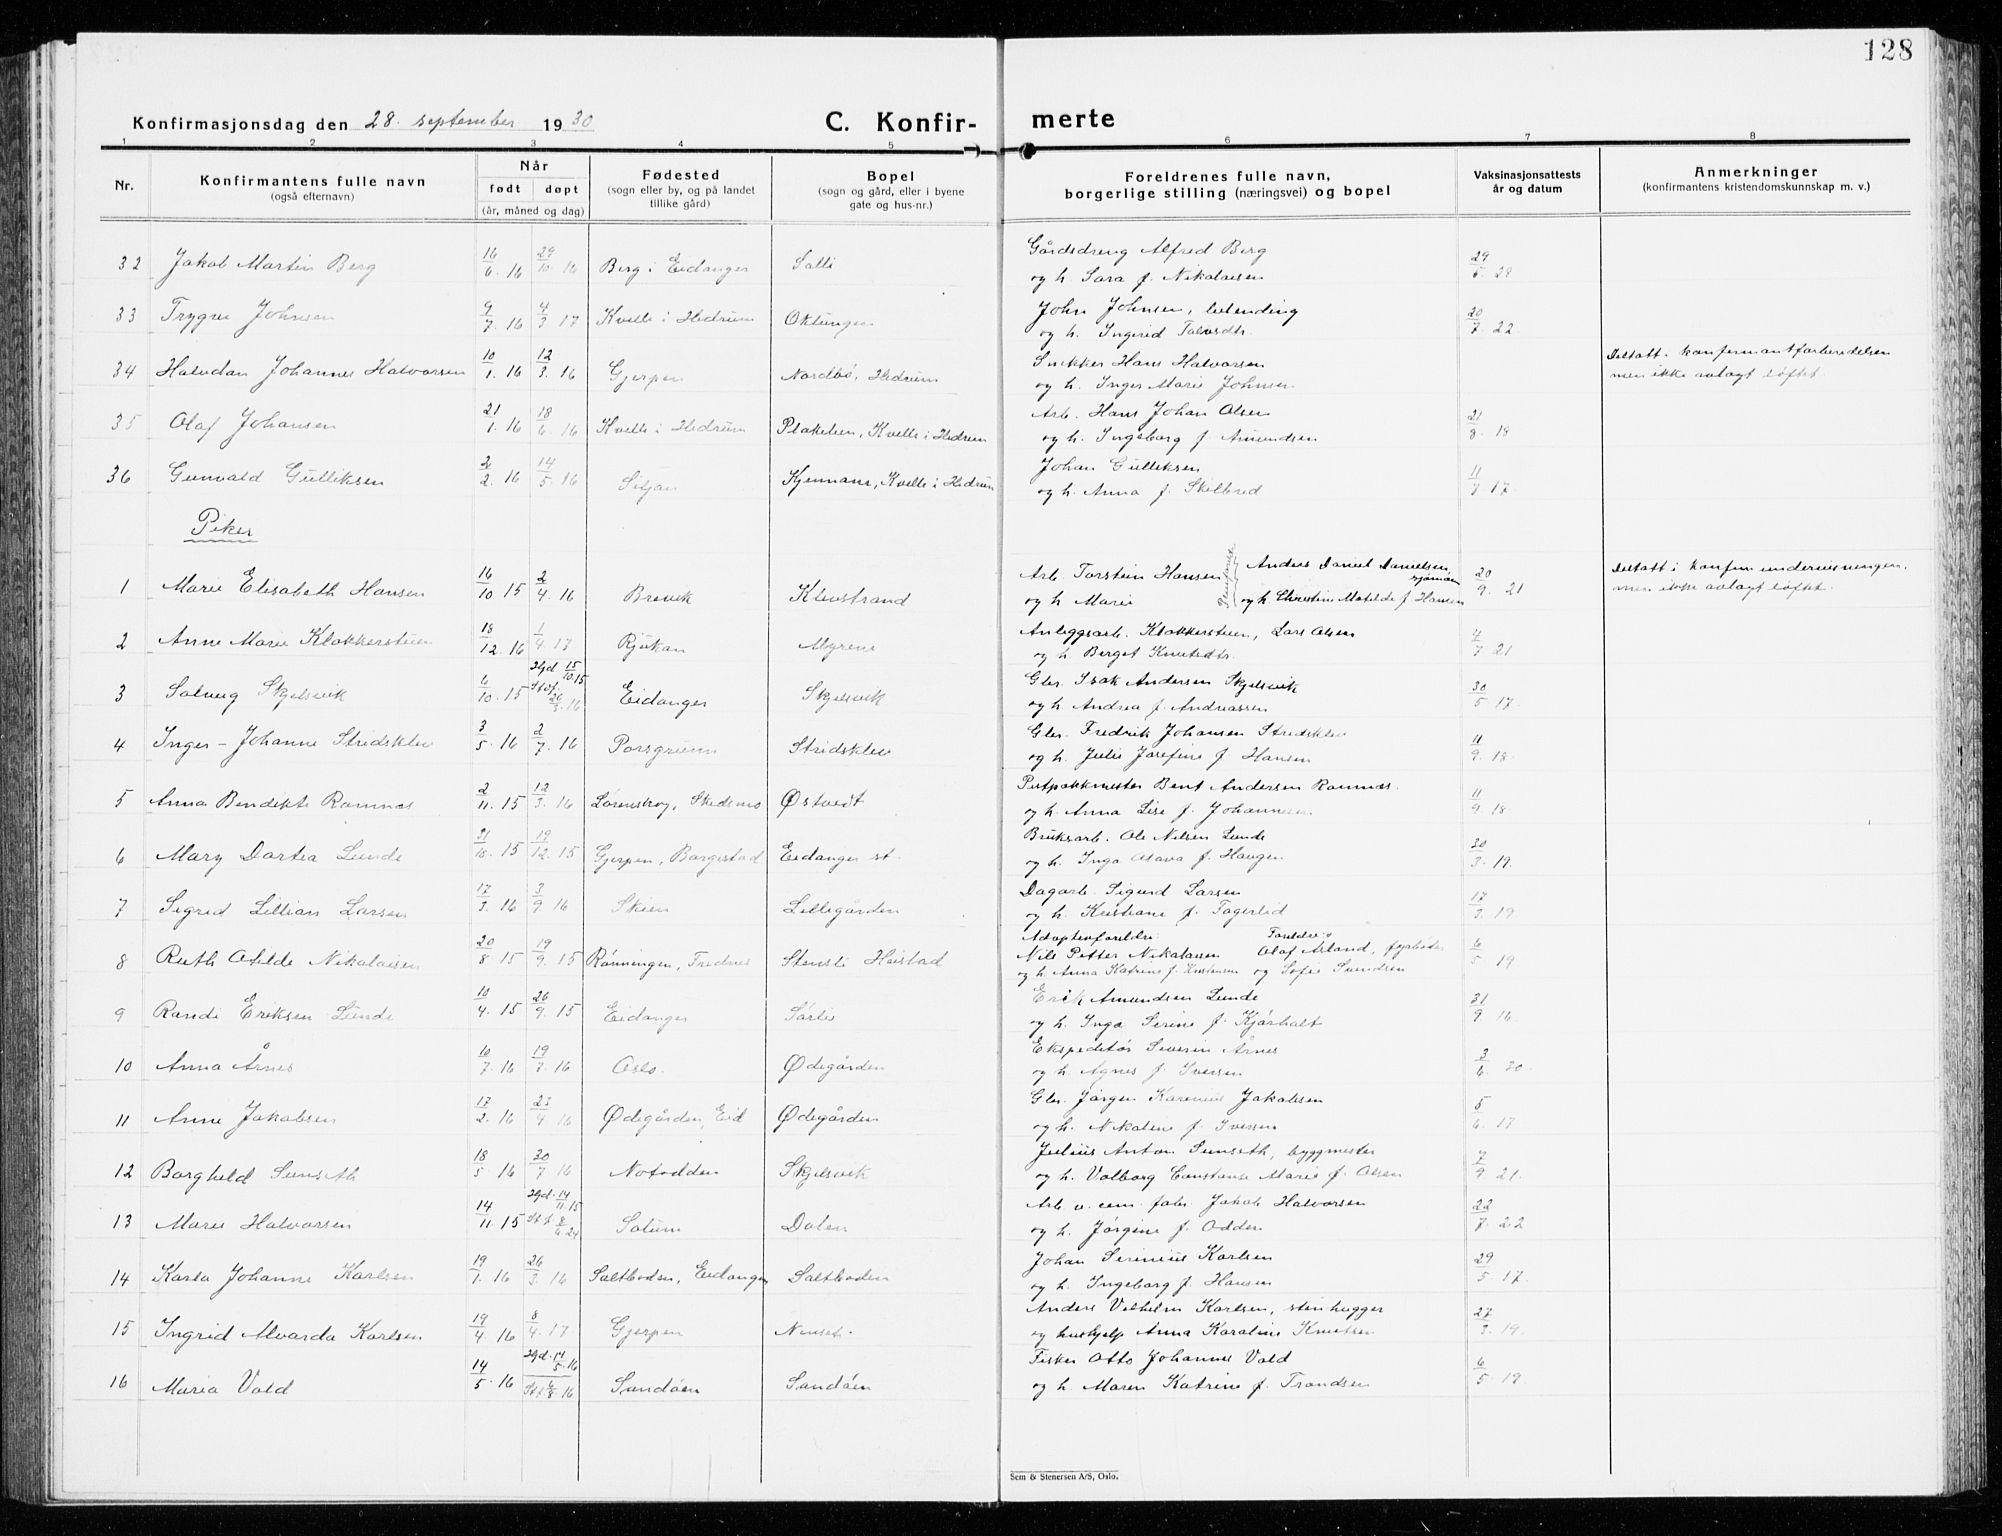 128
Konfirmasjonsdag den 28. september 1930
C. Konfir-
merte
1 2 3 4 5 6 7 8
Nr.
Konfirmantens fulle navn
(også efternavn)
Når
født døpt
(år, måned og dag)
Fødested
(sogn eller by, og på landet
tillike gård)
Bopel
(sogn og gård, eller i byene
gate og hus-nr.)
Foreldrenes fulle navn,
borgerlige stilling (næringsvei) og bopel
Vaksinasjonsattests
år og datum
Anmerkninger
(konfirmantens kristendomskunnskap m. v.)
32 Jakob Martin Berg 16/6 16 29/10 16 Berg i Eidanger Salli Gårdsdreng Alfred Berg 29/5 28
og h. Sara f. Nikolaisen
33 Trygve Johnsen 9/7 16 4/3 17 Kvelle i Hedrum Oklungen John Johnsen, 20/7 22
og h. Ingerid
34 Halvdan Johannes Halvorsen 10/1 16 12/3 16 Gjerpen Nordbø, Hedrum Snekker Hans Halvorsen Deltatt i konfirmantforberedelsen
og h. Inger Marie Johnsen men ikke avlagt løftet.
35 Olaf Johansen 21/1 16 18/6 16 Kvelle i Hedrum Kvelle i Hedrum Arb. Hans Johan Olsen 21/8 18
og h. Ingeborg f. Amundsen
36 Gunvald Gulliksen 2/2 16 14/5 16 Siljan Kvelle i Hedrum Johan Gulliksen 11/7 17
og h. Anna f. Skilbred
Piker
1 Marie Elisabeth Hansen 16/10 15 2/4 16 Brevik Klevstrand Arb. Torstein Hansen Anders Daniel Danielsen, sjømann 20/9 21 Deltatt i konfirm. undervisningen,
og h. Marie og h. Christine Matilde f. Hansen men ikke avlagt løftet.
2 Anne Marie Klokkersteien 18/12 16 1/4 17 Rjukan Myrene Anleggsarb. Klokkersteien, Lars Olsen 4/7 21
og h. Berget Knutsdtr.
3 Solveig Skjelsvik 6/10 15 Hjd. 15/10 15 Stdf. 26/3 16 Eidanger Skjelsvik Gbr. Isak Andersen Skjelsvik 30/5 17
og h. Andrea f. Andreassen
4 Inger-Johanne Stridsklev 3/5 16 2/7 16 Porsgrunn Stridsklev Gbr. Fredrik Johansen Stridsklev 11/9 18
og h. Julie Josefine f. Hansen
5 Anna Bendikte Ramnæs 2/11 15 12/3 16 Lørenskog, Skedsmo Østvedt Putpakkmester Bent Andersen Ramnæs 11/9 18
og h. Anna Lise f. Johannesen
6 Mary Dortea Lunde 31/10 15 19/12 15 Gjerpen, Borgestad Eidanger st. Bruksarb. Ole Nilsen Lunde 30/3 19
og h. Inga Olava f. Haugen
7 Sigrid Lillian Larsen 17/3 16 3/9 16 Skien Lillegården Dagarb. Sigurd Larsen 17/3 19
og h. Kristiane f. Fagerlid
8 Ruth Otilde Nikolaisen 20/8 15 19/9 15 Rønningen, Frednes Stensli Heistad Adoptivforeldre: Foreldre: 6/5 19
Nils Petter Nikolaisen Olaf Arland, fyrbøter
og h. Anna Katrine f. Kristensen og Sofie Svendsen
9 Randi Eriksen Lunde 10/4 15 26/9 15 Eidanger Sørlie Erik Amundsen Lunde 21/9 16
og h. Inga Serine f. Kjørholt
10 Anna Årnes 16/7 16 19/7 16 Oslo. Ødegården Ekspeditør Severin Årnes 3/6 30
og h. Agnes f. Iversen
11 Anne Jakobsen 17/2 16 23/4 16 Ødegården, Eid Ødegården Gbr. Jørgen Karenius Jakobsen 5/6 17
og h. Nikoline f. Iversen
12 Borghild Sunseth 18/5 16 30/7 16 Notodden Skjelsvik Julius Anton Sunseth, byggmester 7/9 21.
og h. Valborg Constanse Marie f. Olsen
13 Marie Halvorsen 14/11 15 Hjd. 14/11 15 Solum Dalen Arb. v. cem. fabr. Jakob Halvorsen 22/7 22
og h. Jørgine f. Odden
14 Karla Johanne Karlsen 19/1 16 26/3 16 Saltboden, Eidanger Saltboden Johan Serinius Karlsen 29/5 17.
og h. Ingeborg f. Hansen
15 Ingrid Alvarda Karlsen 19/4 16 8/4 17 Gjerpen Nenset. Anders Vilhelm Karlsen, stenhugger 27/3 19.
og hushjelp Anna Karoline Knutsen
16 Maria Vold 14/5 16 Hjd. 14/5 16 Stf. 6/8 16 Sandøen Sandøen Fisker Otto Johannes Vold 6/5 19.
og h. Maren Katrine f. Trondsen
Sem & Stenersen A/S, Oslo.